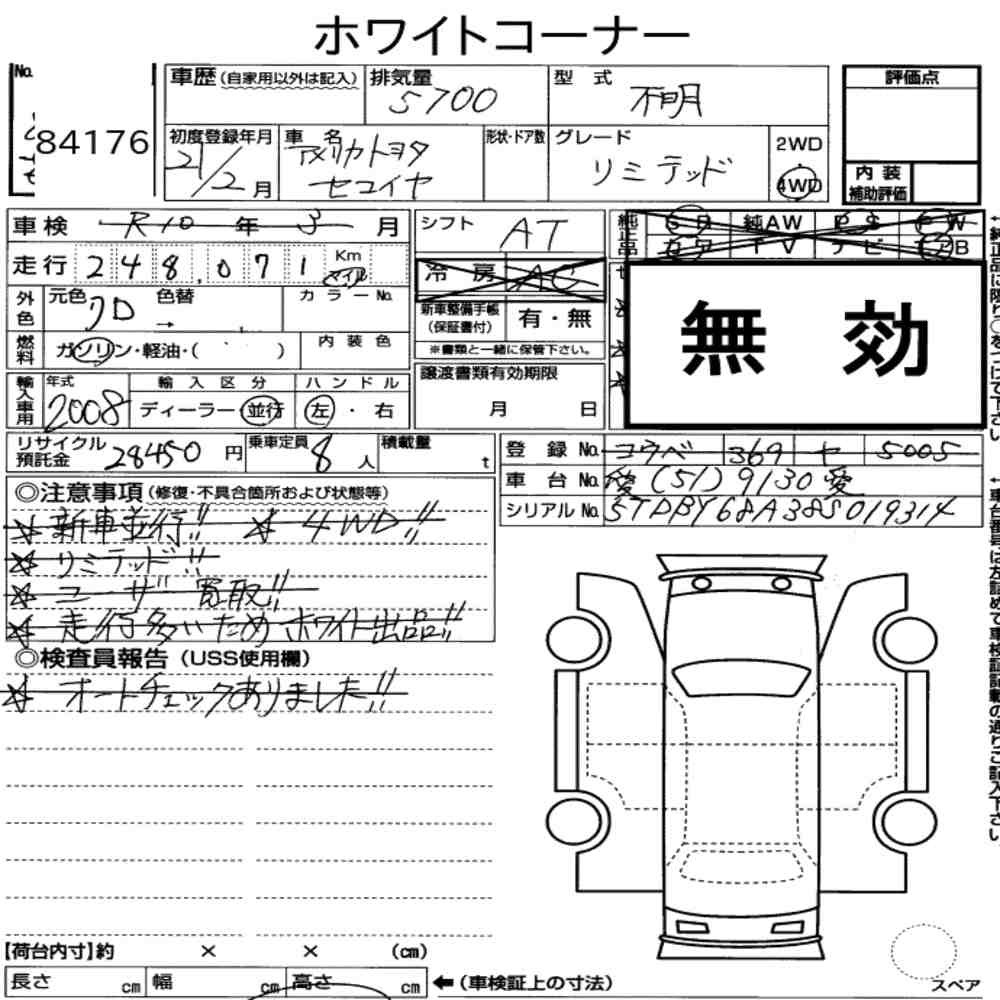 ホワイトコーナー
No. 84176
車歴(自家用以外は記入)
排気量 5700
型式 不明
評価点
初度登録年月 21/2月
車名 アメリカトヨタ セコイヤ
形状・ドア数
グレード リミテッド
2WD
4WD
内装
補助評価
車検 R10年3月
シフト AT
純正品 SR 純AW PS PW
カワ TV ナビ
走行 248,071 Km マイル
冷房 AC
外色 元色 色替 カラーNo.
→
新車整備手帳
(保証書付) 有・無
※書類と一緒に保管下さい。
無効
燃料 ガソリン・軽油・( )
内装色
輸入車用 年式 2008
輸入区分 ディーラー 並行
ハンドル 左・右
譲渡書類有効期限
月 日
リサイクル預託金 28450円
乗車定員 8人
積載量 t
登録No. コウベ 369 ヤ 5005
車台No. 愛(51)9130愛
シリアルNo. 5TDBY68A38S019314
◎注意事項(修復・不具合箇所および状態等)
☆ 新車並行!! ☆ 4WD!!
☆ リミテッド!!
☆ ユーザー買取!!
☆ 走行多いためホワイト出品!!
◎検査員報告(USS使用欄)
☆ オートチェックありました!!
【荷台内寸】約 × × (cm)
長さ cm 幅 cm 高さ cm ←(車検証上の寸法)
スペア
←純正品に限り○をつけて下さい。